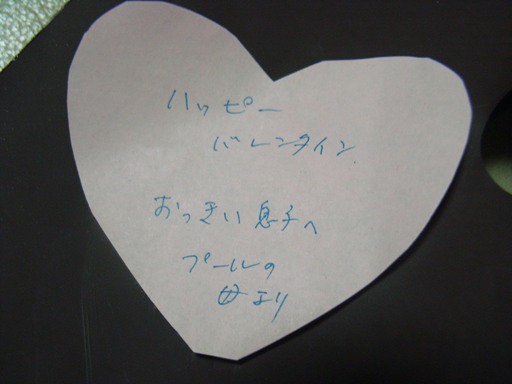 ハッピー
バレンタイン
おっきい息子へ
プールの
母より